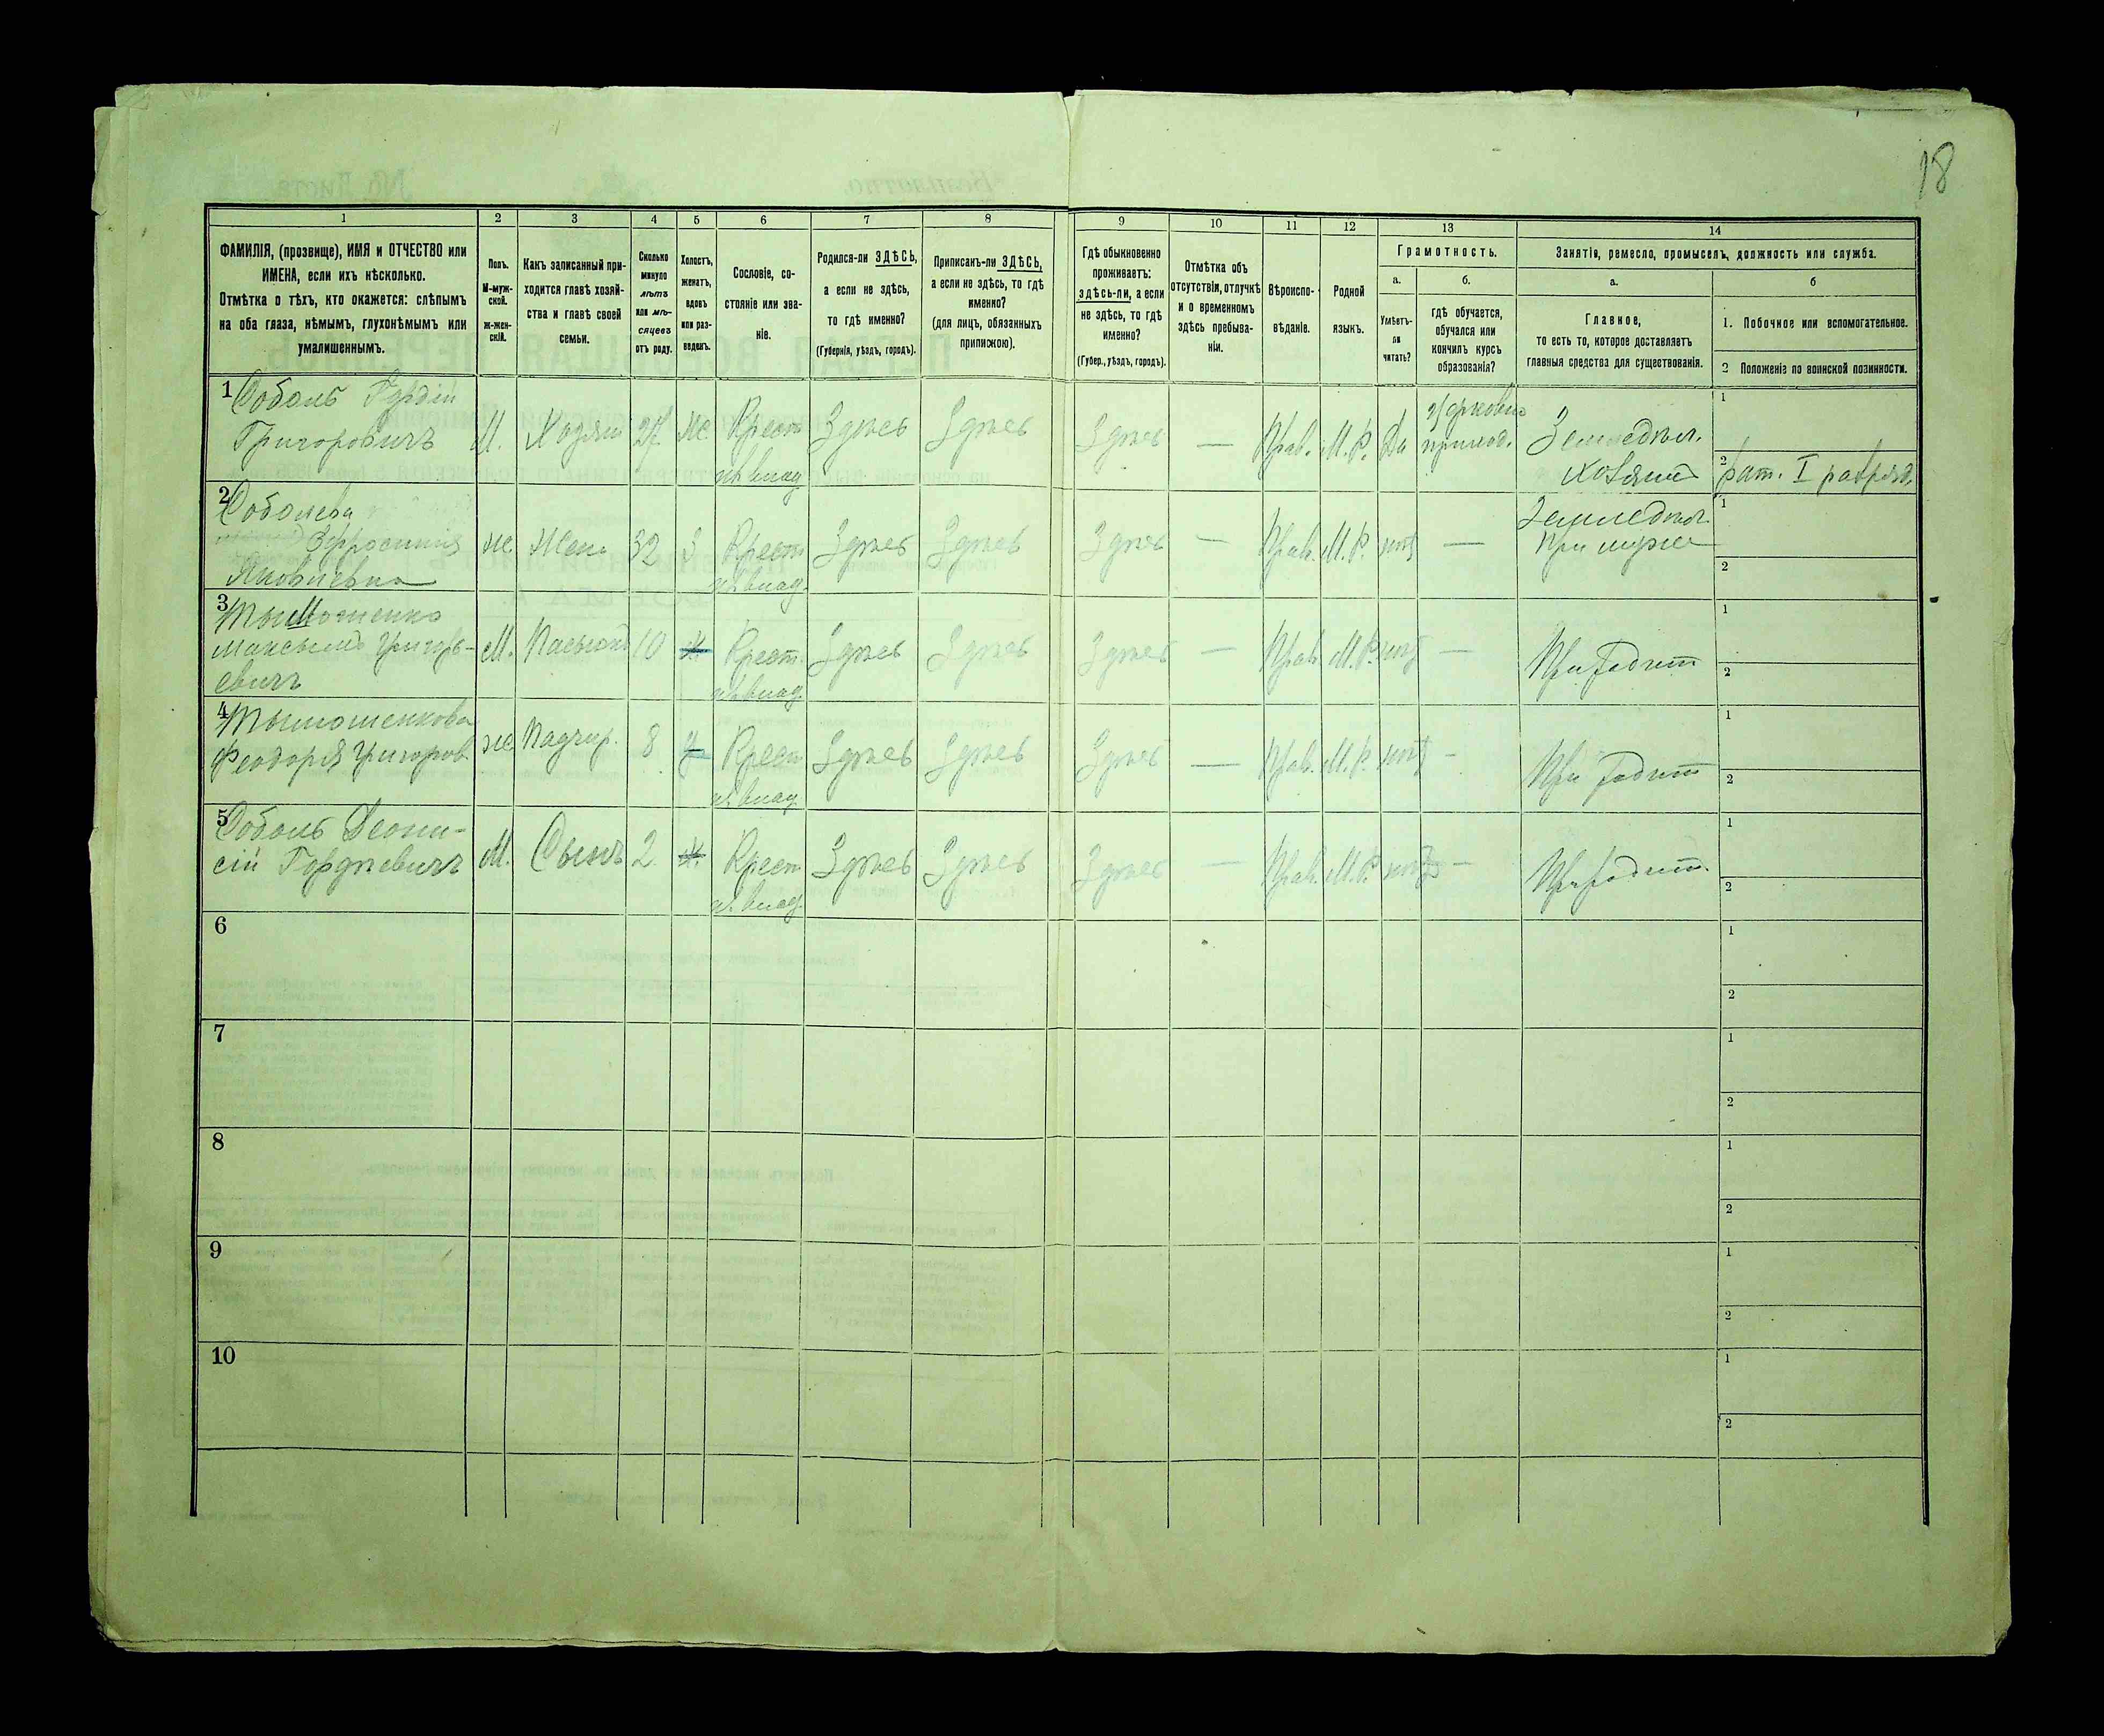 18
1 2 3 4 5 6 7 8 9 10 11 12 13 14
ФАМИЛІЯ, (прозвище), ИМЯ и ОТЧЕСТВО или
ИМЕНА, если ихъ нѣсколько.
Отмѣтка о тѣхъ, кто окажется: слѣпымъ
на оба глаза, нѣмымъ, глухонѣмымъ или
умалишеннымъ.
Полъ.
М-муж-
ской.
ж-жен-
скій.
Какъ записанный при-
ходится главѣ хозяй-
ства и главѣ своей
семьи.
Сколько
минуло
лѣтъ
или мѣ-
сяцевъ
отъ роду.
Холостъ,
женатъ,
вдовъ
или раз-
веденъ.
Сословіе, со-
стояніе или зва-
ніе.
Родился-ли ЗДѢСЬ,
а если не здѣсь,
то гдѣ именно?
(Губернія, уѣздъ, городъ).
Приписанъ-ли ЗДѢСЬ,
а если не здѣсь, то гдѣ
именно?
(для лицъ, обязанныхъ
припискою).
Гдѣ обыкновенно
проживаетъ:
здѣсь-ли, а если
не здѣсь, то гдѣ
именно?
(Губер., уѣздъ, городъ).
Отмѣтка объ
отсутствіи, отлучкѣ
и о временномъ
здѣсь пребыва-
ніи.
Вѣроиспо-
вѣданіе.
Родной
языкъ.
Грамотность.
а.
Умѣетъ-
ли
читать?
б.
гдѣ обучается,
обучался или
кончилъ курсъ
образованія?
Занятіе, ремесло, промыселъ, должность или служба.
а.
Главное,
то есть то, которое доставляетъ
главныя средства для существованія.
б
1. Побочное или вспомогательное.
2 Положеніе по воинской повинности.
1 Соболь Гордій
Григоровичъ М. Хозяин 27 Ж. Крест Здѣсь Здѣсь Здѣсь — Прав. М.Р. Да приход. Земледѣл. 1
из влад. хозяин 2 рат. I разряд.
2 Соболева
Эфросинія Ж Жена 32 З Крест Здѣсь Здѣсь Здѣсь — Прав. М.Р. нѣт — Земледѣл. При мужѣ 1
Яковлевна из влад. 2
3 Тымошенко
Максымъ Григорь- М. Пасынокъ 10 Х. Крест. Здѣсь Здѣсь Здѣсь — Прав. М.Р. нѣт — При родит 1
евичъ из влад. 2
4 Тымошенкова
Феодора Григоров Ж Падчер. 8 Крест Здѣсь Здѣсь Здѣсь — Прав. М.Р. нѣт — При родит 1
из влад. 2
5 Соболь Деони-
сій Гордѣевичъ М. Сынъ 2 Х. Крест Здѣсь Здѣсь Здѣсь — Прав. М.Р. нѣт — При родит. 1
из влад. 2
6 1
2
7 1
2
8 1
2
9 1
2
10 1
2